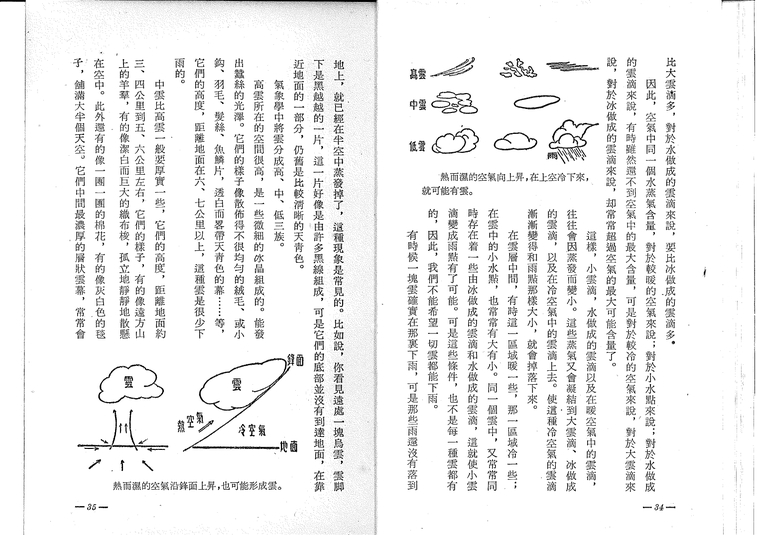 比大雲滴多，對於水做成的雲滴來說，要比冰做成的雲滴多。
因此，空氣中同一個水蒸氣含量，對於較暖的空氣來說；對於小水點來說；對於水做成
的雲滴來說，有時雖然還不到空氣中的最大含量，可是對於較冷的空氣來說，對於大雲滴來
說，對於冰做成的雲滴來說，却常常超過空氣的最大可能含量了。
高雲
中雲
低雲
熱而濕的空氣向上昇，在上空冷下來，
就可能有雲。
這樣，小雲滴，水做成的雲滴以及在暖空氣中的雲滴，
往往會因蒸發而變小。這些蒸氣又會凝結到大雲滴、冰做成
的雲滴，以及在冷空氣中的雲滴上去。使這種冷空氣的雲滴
漸漸變得和雨點那樣大小，就會掉落下來。
在雲層中間，有時這一區域暖一些，那一區域冷一些；
在雲中的小水點，也常常有大有小。同一個雲中，又常常同
時存在着一些由冰做成的雲滴和水做成的雲滴，這就使小雲
滴變成雨點有了可能。可是這些條件，也不是每一種雲都有
的，因此，我們不能希望一切雲都能下雨。
有時候一塊雲確實在那裏下雨，可是那些雨還沒有落到
—34—
地上，就已經在半空中蒸發掉了，這種現象是常見的。比如說，你看見遠處一塊烏雲，雲脚
下是黑越越的一片，這一片好像是由許多黑線組成，可是它們的底部並沒有到達地面，在靠
近地面的一部分，仍舊是比較清晰的天青色。
氣象學中將雲分成高、中、低三族。
高雲所在的空間很高，是一些微細的冰晶組成的。能發
出蠶絲的光澤。它們的樣子像散佈得不很均勻的絨毛、或小
鈎、羽毛、髮絲、魚鱗片，透白而畧帶天青色的幕……等，
它們的高度，距離地面在六、七公里以上，這種雲是很少下
雨的。
中雲比高雲一般要厚實一些，它們的高度，距離地面約
三、四公里到五、六公里左右，它們的樣子，有的像遠方山
上的羊羣，有的像潔白而巨大的織布梭，孤立地靜靜地散懸
在空中。此外還有的像一團一團的棉花，有的像灰白色的毯
子，舖滿大半個天空。它們中間最濃厚的層狀雲幕，常常會
雲
雲
鋒面
熱空氣
冷空氣
地面
熱而濕的空氣沿鋒面上昇，也可能形成雲。
—35—